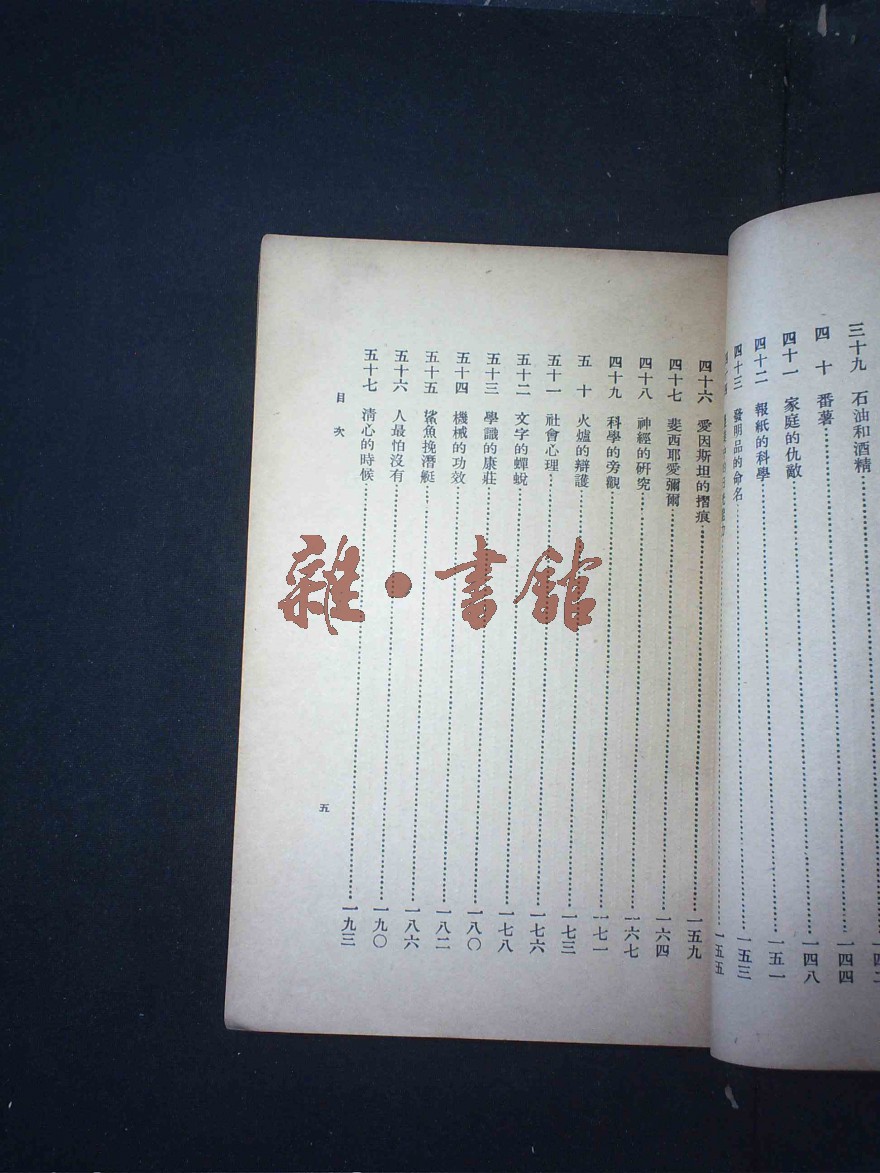 三十九 石油和酒精
四十 番薯 一四四
四十一 家庭的仇敵 一四八
四十二 報紙的科學 一五一
四十三 發明品的命名 一五三
一五五
四十六 愛因斯坦的摺痕 一五九
四十七 斐西耶愛彌爾 一六四
四十八 神經的硏究 一六七
四十九 科學的旁觀 一七一
五十 火爐的辯護 一七三
五十一 社會心理 一七六
五十二 文字的蟬蛻 一七八
五十三 學識的康莊 一八〇
五十四 機械的功效 一八二
五十五 鯊魚挽潛艇 一八六
五十六 人最怕沒有 一九〇
五十七 清心的時候 一九三
目次
五
雜·書館